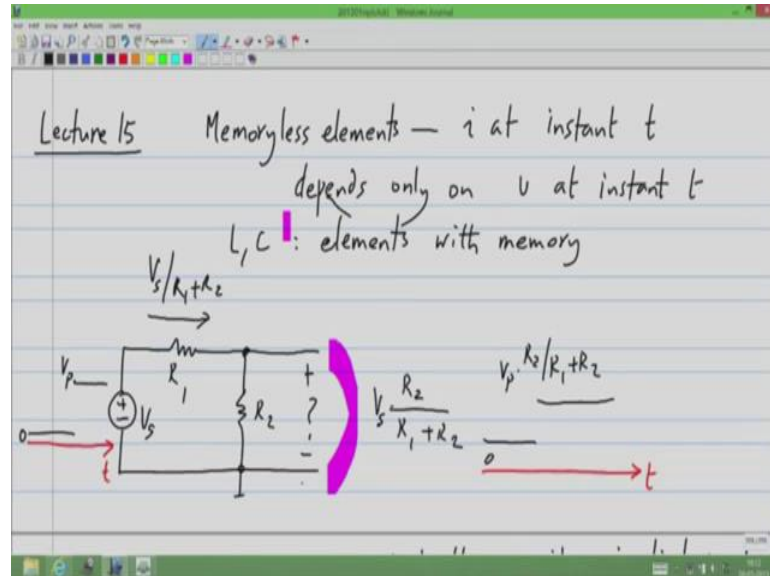 Lecture 15 Memoryless elements — i at instant t
depends only on v at instant t
L, C : elements with memory
Vs/R1+R2
R1
Vp
+
-
Vs
0
t
R2
+
?
-
Vs R2/R1+R2
Vp · R2/R1+R2
0
t